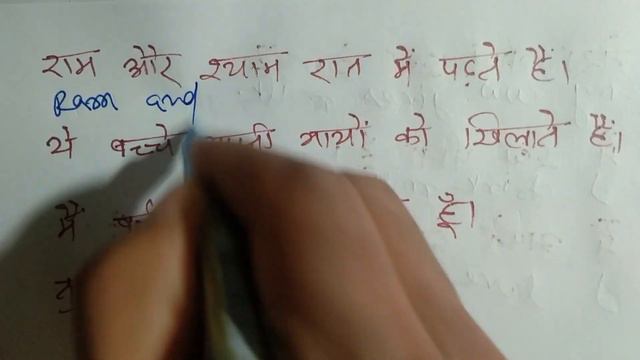 राम और श्याम रात में पढ़ते हैं।
Ram and
ये बच्चे गायों को खिलाते हैं।
मैं हूँ।